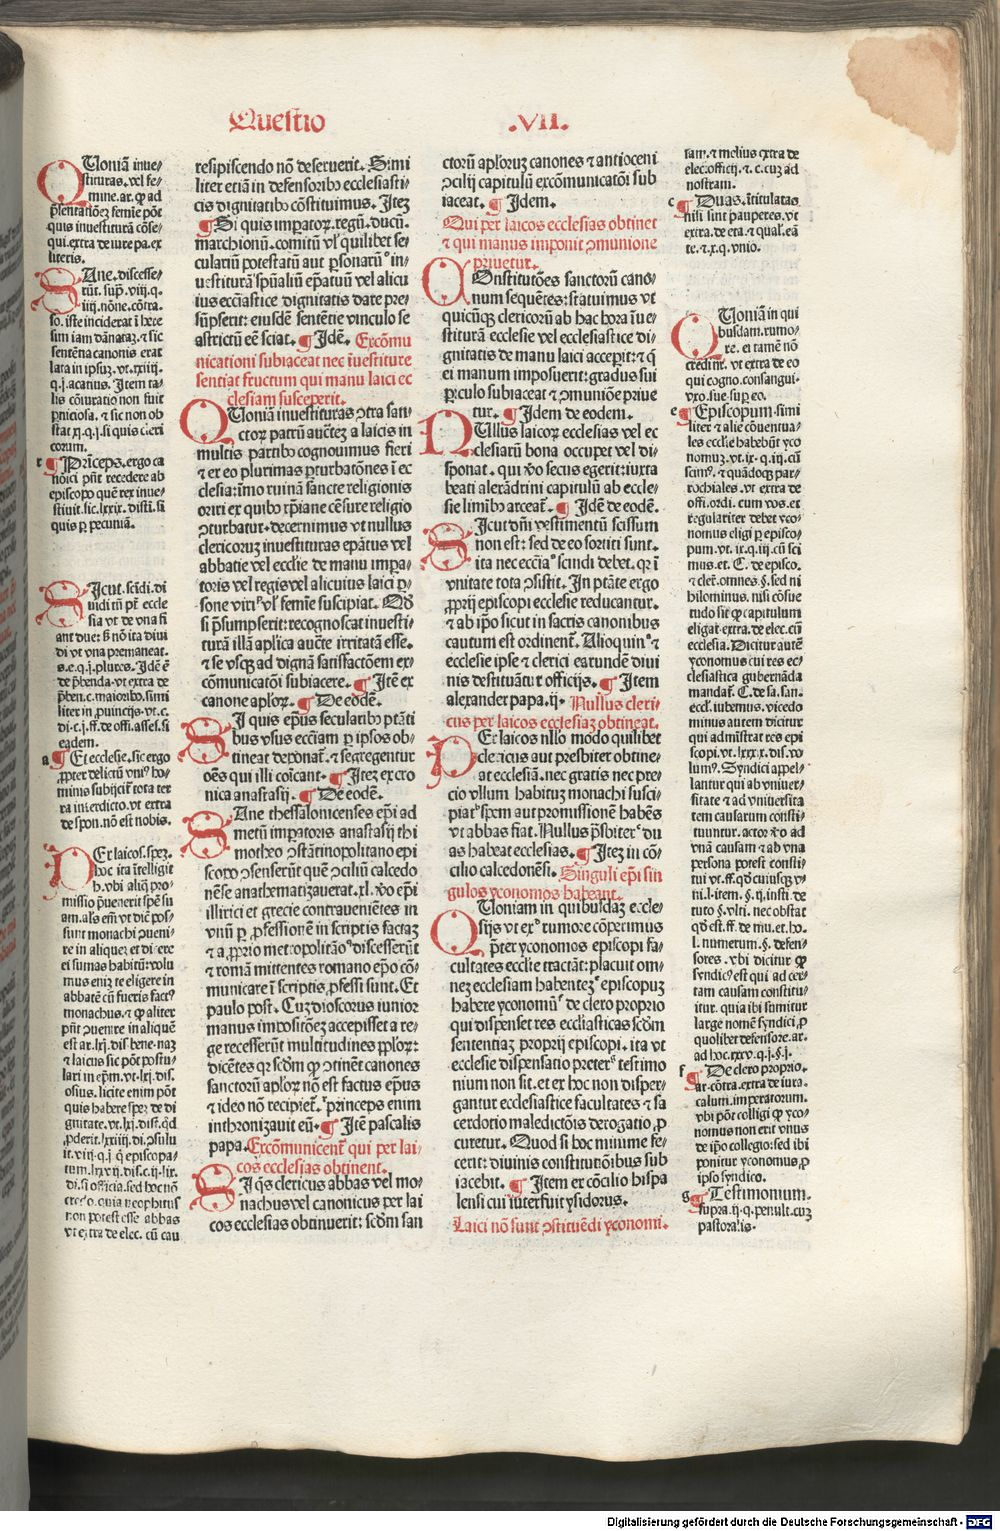 Questio .VII.
Quoniã inue⸗
stituras. vel fe⸗
mine. ar. ꝙ ad
pͥsentationẽz femine põt
quis inuestiturã cõse⸗
qui. extra de iure pa. ex
literis.
SAne. discesse⸗
rũt. sup̃. viij. q.
iiij. nõne. cõtra.
so. iste inciderat ĩ here
sim iam dãnataz. ⁊ sic
sentẽtia canonis erat
lata in ipsuz. vt. xxiiij.
q. j. acatius. Item ta⸗
lis cõiuratio non fuit
ꝑniciosa. ⁊ sic non ob
stat xj. q. j. si quis cleri
corum.
¶ Prĩceps. ergo ca
nõici pñt recedere ab
episcopo quẽ rex inue⸗
stiuit. sic. lxxix. disti. si
quis ꝑ pecuniã.
SIcut. scĩdi. di
uidi tñ pt̃ eccle
sia vt de vna fi
ant due: ß nõ ita diui
di vt vna premaneat.
s. e. q. j. plures. Idẽ ẽ
de p̃benda. vt extra de
p̃ben. c. maioribo. simi
liter in ꝓuincijs. vt. c.
di. c. j. ff. de offi. asses. si
eadem.
¶ Et ecclesie. sic ergo
ꝓpter delictũ vniꝰ ho⸗
minis subijcit̃ tota ter
ra interdicto. vt extra
de spon. nõ est nobis.
PEr laicos. spez.
hoc ita ĩtelligit
h. vbi aliq̃ pro⸗
missio ꝓuenerit spẽ su
am. als em̃ vt diẽ pos⸗
sunt monachi ꝓueni⸗
re in alique; et dicere
ei sumas habitũ: volu
mus eniz te eligere in
abbatẽ cũ fueris factꝰ
monachus. ⁊ ꝙ aliter
pñt ꝓuenire in aliquẽ
est ar. lxj. dis bene. naz
⁊ laicus sic põt postu⸗
lari in ep̃m. vt. lxj. dis.
osius. licite enim põt
quis habere spez de di
gnitate. vt. lxj. dist. q̃d
ꝓderit. lxxiiij. di. ꝯsulu
it. viij. q. j. q̃ episcopa⸗
tum. lxxvij. dis. c. ij. lix.
di. si officia. sed hoc nõ
credo. quia neophitus
non potest esse abbas
vt extra de elec. cũ cau
resipiscendo nõ deseruerit. Simi
liter etiã in defensoribꝰ ecclesiasti⸗
cis dignitatibꝰ cõstituimus. Itez
¶ Si quis imp̃ator. regũ. ducũ.
marchionũ. comitũ vl̓ quilibet se⸗
culariũ potestatũ aut ꝑsonarũ in⸗
uestiturã sp̃ualiũ ep̃atuũ vel alicu
ius ecc̃iastice dignitatis dare pre⸗
sũpserit: eiusdẽ sentẽtie vinculo se
astrictũ eẽ sciat. ¶ Idẽ. Excõmu
nicationi subiaceat nec ĩuestiture
sentiat fructum qui manu laici ec
clesiam susceperit.
QUoniã inuestituras ꝯtra san⸗
ctoꝝ patrũ auctez̃ a laicis in
multis partibꝰ cognouimus fieri
⁊ ex eo plurimas ꝑturbatõnes ĩ ec
clesia: imo ruinã sancte religionis
oriri ex quibꝰ xp̃iane cẽsure religio
ꝯturbatur. decernimus vt nullus
clericoruz inuestituras ep̃atus vel
abbatie vel eccl̓ie de manu imp̃a⸗
toris vel regis vel alicuius laici ꝑ⸗
sone viri vl̓ femĩe suscipiat. Qd̓
si p̃sumpserit: recognoscat inuesti⸗
turã illã aplica aucte irritatã esse.
⁊ se vsqꝫ ad dignã satisfactõem ex⸗
cõmunicatõi subiacere. ¶ Itẽ ex
canone aploꝝ. ¶ De eodẽ.
SI quis ep̃us secularibꝰ ptãti
bus vsus ecc̃iam ꝑ ipsos ob⸗
tineat deponat̃. ⁊ segregentur
oẽs qui illi coĩcant. ¶ Itez ex cro
nica anastasij. ¶ De eodẽ.
SAne thessalonicenses ep̃i ad
metũ imp̃atoris anastasij thi
motheo ꝯstãtinopolitano epi
scopo ꝯsenserũt quẽ ꝯciliũ calcedo
nẽse anathematizauerat. xl. ṽo ep̃i
illirici et grecie contraueniẽtes in
vnũ ꝑ ꝓfessionẽ in scriptis factaz
⁊ a ꝓprio metropolitão discesserũt
⁊ romã mittentes romano ep̃o cõ⸗
municare ĩ scriptis ꝓfessi sunt. Et
paulo post. Cuz dioscorus iunior
manus impositõez accepisset a re⸗
ge recesserũt multitudines pploꝝ:
dicẽtes qꝛ scd̓m ꝙ ꝯtinẽt canones
sanctorũ aploꝝ nõ est factus ep̃us
⁊ ideo nõ recipiet̃. princeps enim
inthronizauit eũ. ¶ Itẽ pascalis
papa. Excõmunicent̃ qui per lai⸗
cos ecclesias obtinent.
SI q̃s clericus abbas vel mo⸗
nachus vel canonicus per lai
cos ecclesias obtinuerit: scd̓m san
ctorũ aploꝝ canones ⁊ antioceni
ꝯcilij capitulũ excõmunicatõi sub
iaceat. ¶ Idem.
Qui per laicos ecclesias obtinet
⁊ qui manus imponit ꝯmunione
priuetur.
COnstitutões sanctorũ cano⸗
num sequẽtes: statuimus vt
quicũqꝫ clericorũ ab hac hora ĩue⸗
stiturã ecclesie vel ecclesiastice di⸗
gnitatis de manu laici acceperit: ⁊ q̃
ei manum imposuerit: gradus sui
ꝑiculo subiaceat ⁊ ꝯmuniõe priue
tur. ¶ Idem de eodem.
NUllus laicoꝝ ecclesias vel ec
clesiarũ bona occupet vel di⸗
sponat. qui ṽo secus egerit: iuxta
beati alexãdrini capitulũ ab eccle⸗
sie limĩbꝰ arceat̃. ¶ Idẽ de eodẽ.
SIcut dñi vestimentũ scissum
non est: sed de eo sortiti sunt.
ita nec ecc̃ia scindi debet. qꝛ ĩ
vnitate tota ꝯsistit. In ptãte ergo
ꝓprij episcopi ecclesie reducantur.
⁊ ab ip̃o sicut in sacris canonibus
cautum est ordinent̃. Alioquin ⁊
ecclesie ipse ⁊ clerici earundẽ diui
nis destituãtur officijs. ¶ Item
alexander papa. ij. Nullus cleri⸗
cus per laicos ecclesiaz obtineat.
PEr laicos nllo modo quilibet
clericus aut presbiter obtine⸗
at ecclesiã. nec gratis nec pre⸗
cio vllum habituz monachi susci⸗
piat spem aut promissionẽ habẽs
vt abbas fiat. Nullus p̃sbiter du
as habeat ecclesias. ¶ Itez in cõ⸗
cilio calcedonẽsi. Singuli ep̃i sin
gulos yconomos habeant.
QUoniam in quibusdaz eccle⸗
sijs vt ex rumore cõperimus
p̃ter yconomos episcopi fa⸗
cultates eccl̓ie tractãt: placuit om⸗
nez ecclesiam habentez episcopuz
habere yconomũ de clero proprio
qui dispenset res eccl̓iasticas scd̓m
sententiaz proprij episcopi. ita vt
ecclesie dispensatio preter testimo
nium non sit. et ex hoc non disper⸗
gantur ecclesiastice facultates ⁊ sa
cerdotio maledictõis derogatio ꝓ
curetur. Quod si hoc minime fe⸗
cerit: diuinis constitutiõibus sub
iacebit. ¶ Item ex cõcilio hispa
lensi cui iterfuit ysidorus.
Laici nõ sunt ꝯstituẽdi yconomi.
sam. ⁊ melius extra de
elec. officij. ⁊. c. cuz ad
nostram.
¶ Duas. ĩtitulatas
nisi sint pauperes. vt
extra. de eta. ⁊ qual. eã
te. ⁊. x. q. vnio.
QUoniã in qui
busdam. rumo⸗
re. ei tamẽ nõ
credit̃. vt extra de eo
qui cogno. consangui.
vxo. sue. sup eo.
¶ Episcopum. simi
liter ⁊ alie cõuentua⸗
les eccl̓ie habebũt yco
nomuz. vt. ix. q. iij. cũ
scimꝰ. ⁊ quãdoqꝫ par⸗
rochiales. vt extra de
offi. ordi. cum vos. et
regulariter debet yco⸗
nomus eligi ꝑ episco⸗
pum. vt. ix. q. iij. cũ sci
mus. et. C. de episco.
⁊ cler. omnes. §. sed ni
hilominus. nisi cõsue
tudo sit ꝙ capitulum
eligat. extra. de elec. cũ
ecclesia. Dicitur autẽ
yconomus cui res ec⸗
clesiastica gubernãda
mandat̃. C. de sa. san.
eccl. iubemus. vicedo
minus autem dicitur
qui admĩstrat res epi
scopi. vt. lxxxx. dis. vo
lumꝰ. Syndici appel⸗
lantur qui ab vniuer⸗
sitate ⁊ ad vniuersita
tem causarum consti⸗
tuuntur. actor ṽo ad
vnã causam ⁊ ab vna
persona potest consti⸗
tui vt. ff. qd̓ cuiusqꝫ v⸗
ni. l. item. §. ij. insti. de
tuto §. vlti. nec obstat
qd̓ est. ff. de mu. et. ho.
l. numerum. §. defen⸗
sores. vbi dicitur ꝙ
syndicꝰ est qui ad cer⸗
tam causam constitu⸗
itur. quia ibi sumitur
large nomẽ syndici ꝓ
quolibet defensore. ar.
ad hoc. xxv. q. j. §. j.
¶ De clero proprio.
ar. cõtra. extra de iura⸗
calum. imperatorum.
vbi põt colligi ꝙ yco⸗
nomus non erit vnus
de ip̃o collegio: sed ibi
ponitur yconomus ꝓ
ipso syndico.
¶ Testimonium.
supra. ij. q. penult. cuz
pastoralis.
Digitalisierung gefördert durch die Deutsche Forschungsgemeinschaft - DFG